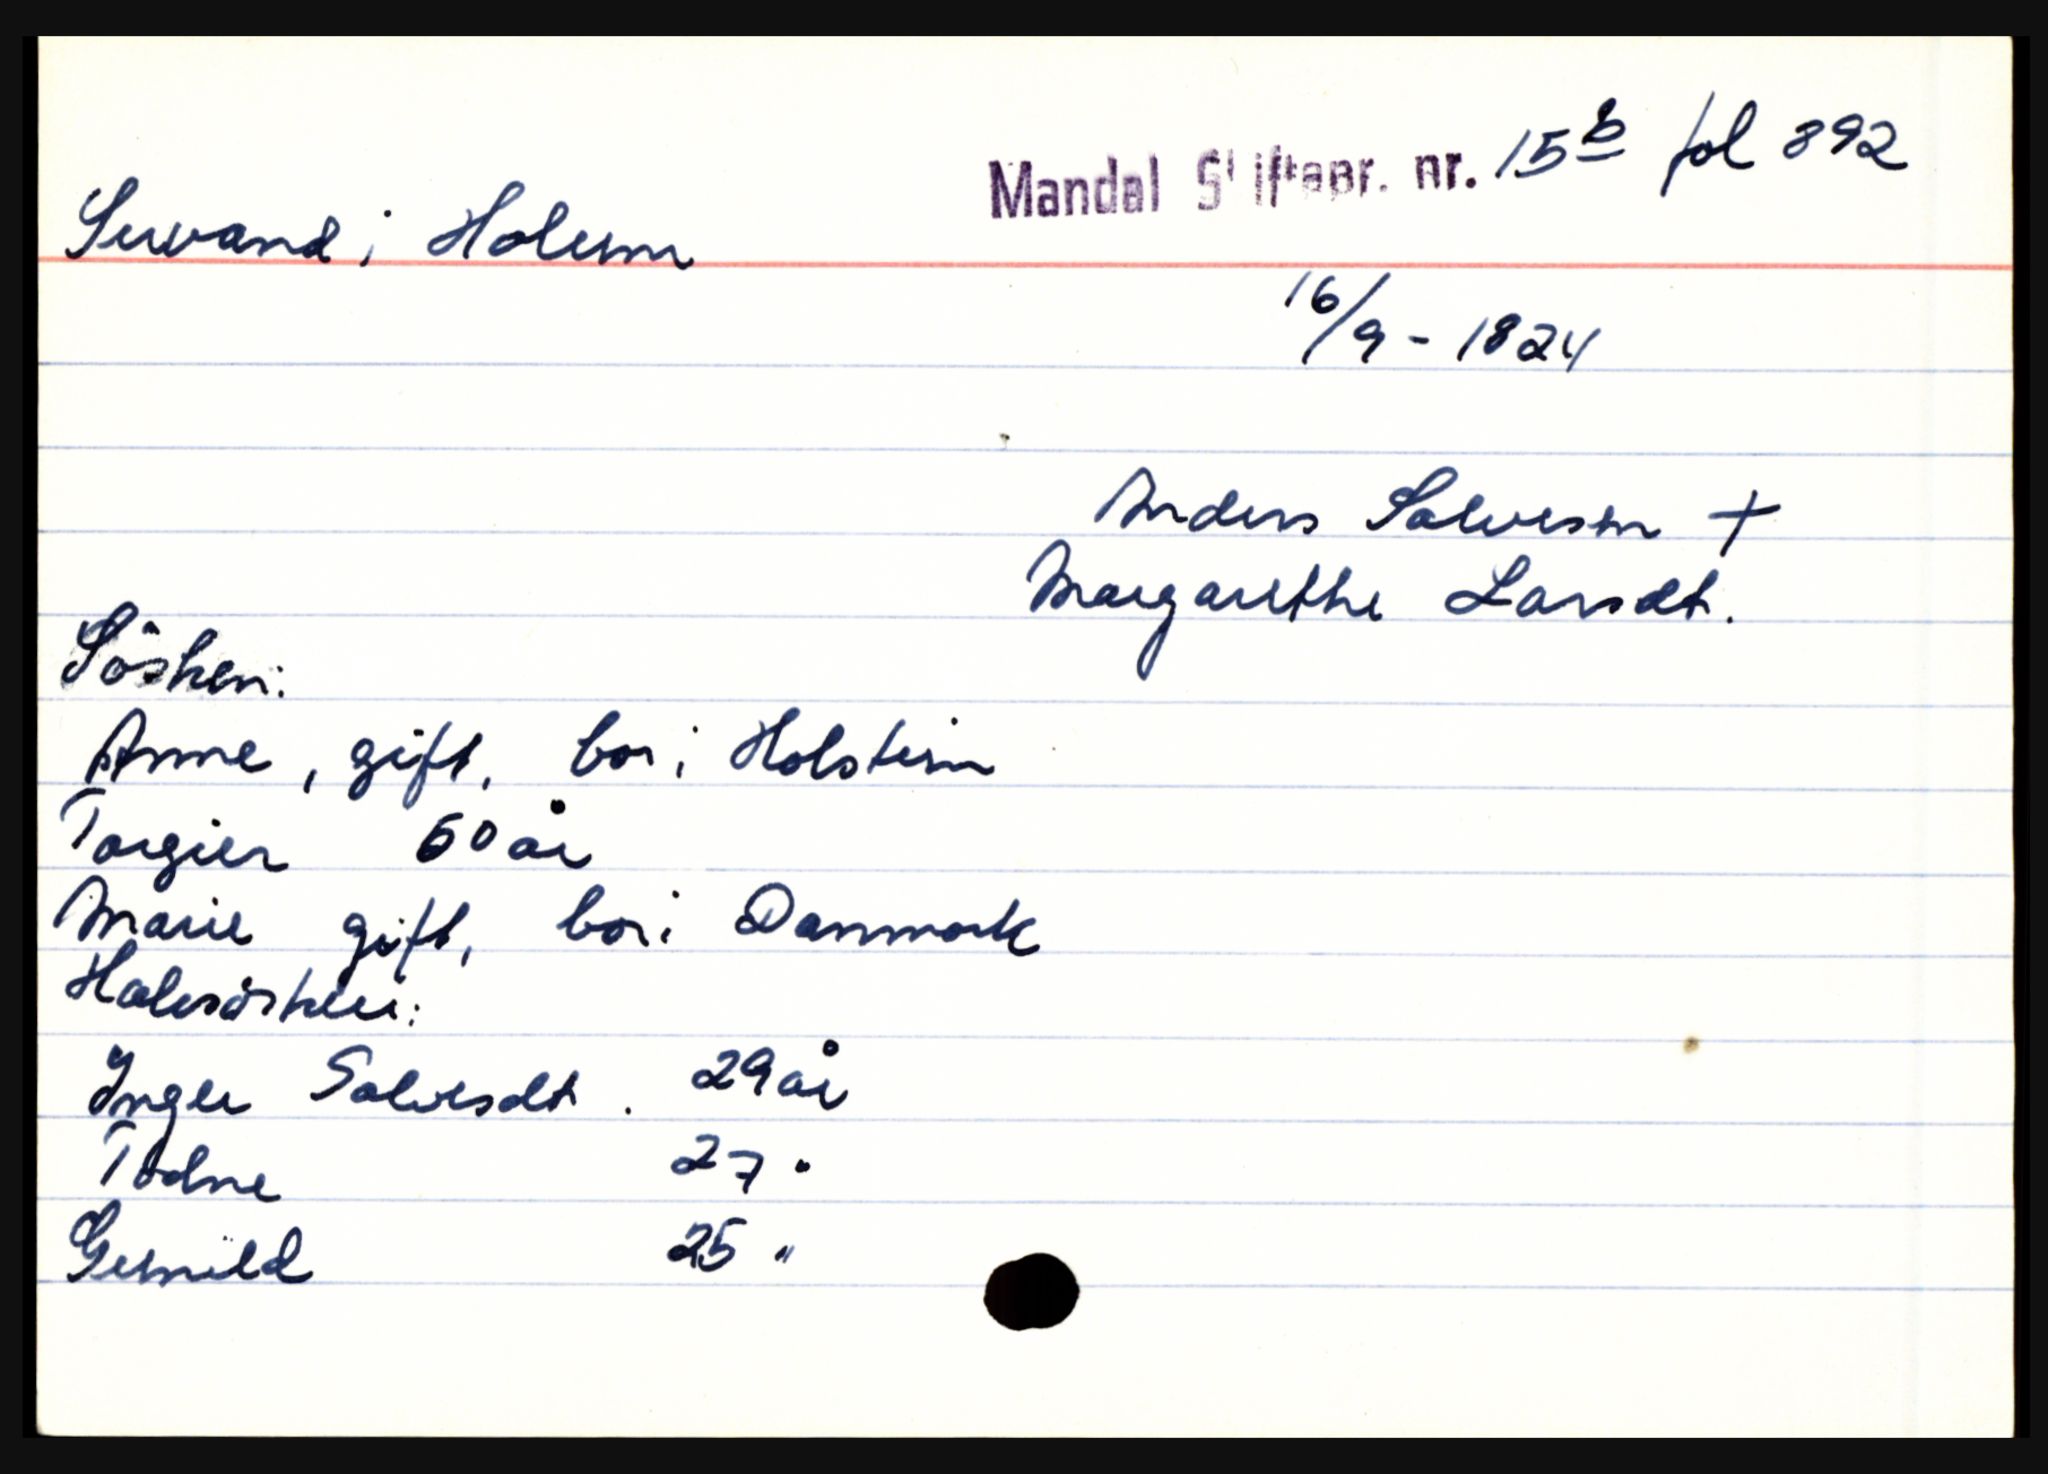 Mandal Skiftepr. nr. 15b fol 892
Suvand i Holum
16/9 - 1824
Anders Salvesen +
Margarethe Larsdt.
Søsken:
Anne, gift, bor i Holstein
Torgier 60 år
Marie gift, bor i Danmark
Halvsøsken:
Inger Salvesdt. 29 år
Todne 27 "
Gunild 25 "